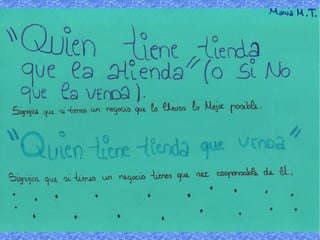 Maria M.T.
"Quien tiene tienda
que la atienda" (o si No
que la venda).
Significa que si tienes un negocio que lo lleves lo Mejor posible.
"Quien tiene tienda que venda"
Significa que si tienes un negocio tienes que ser responsable de él.